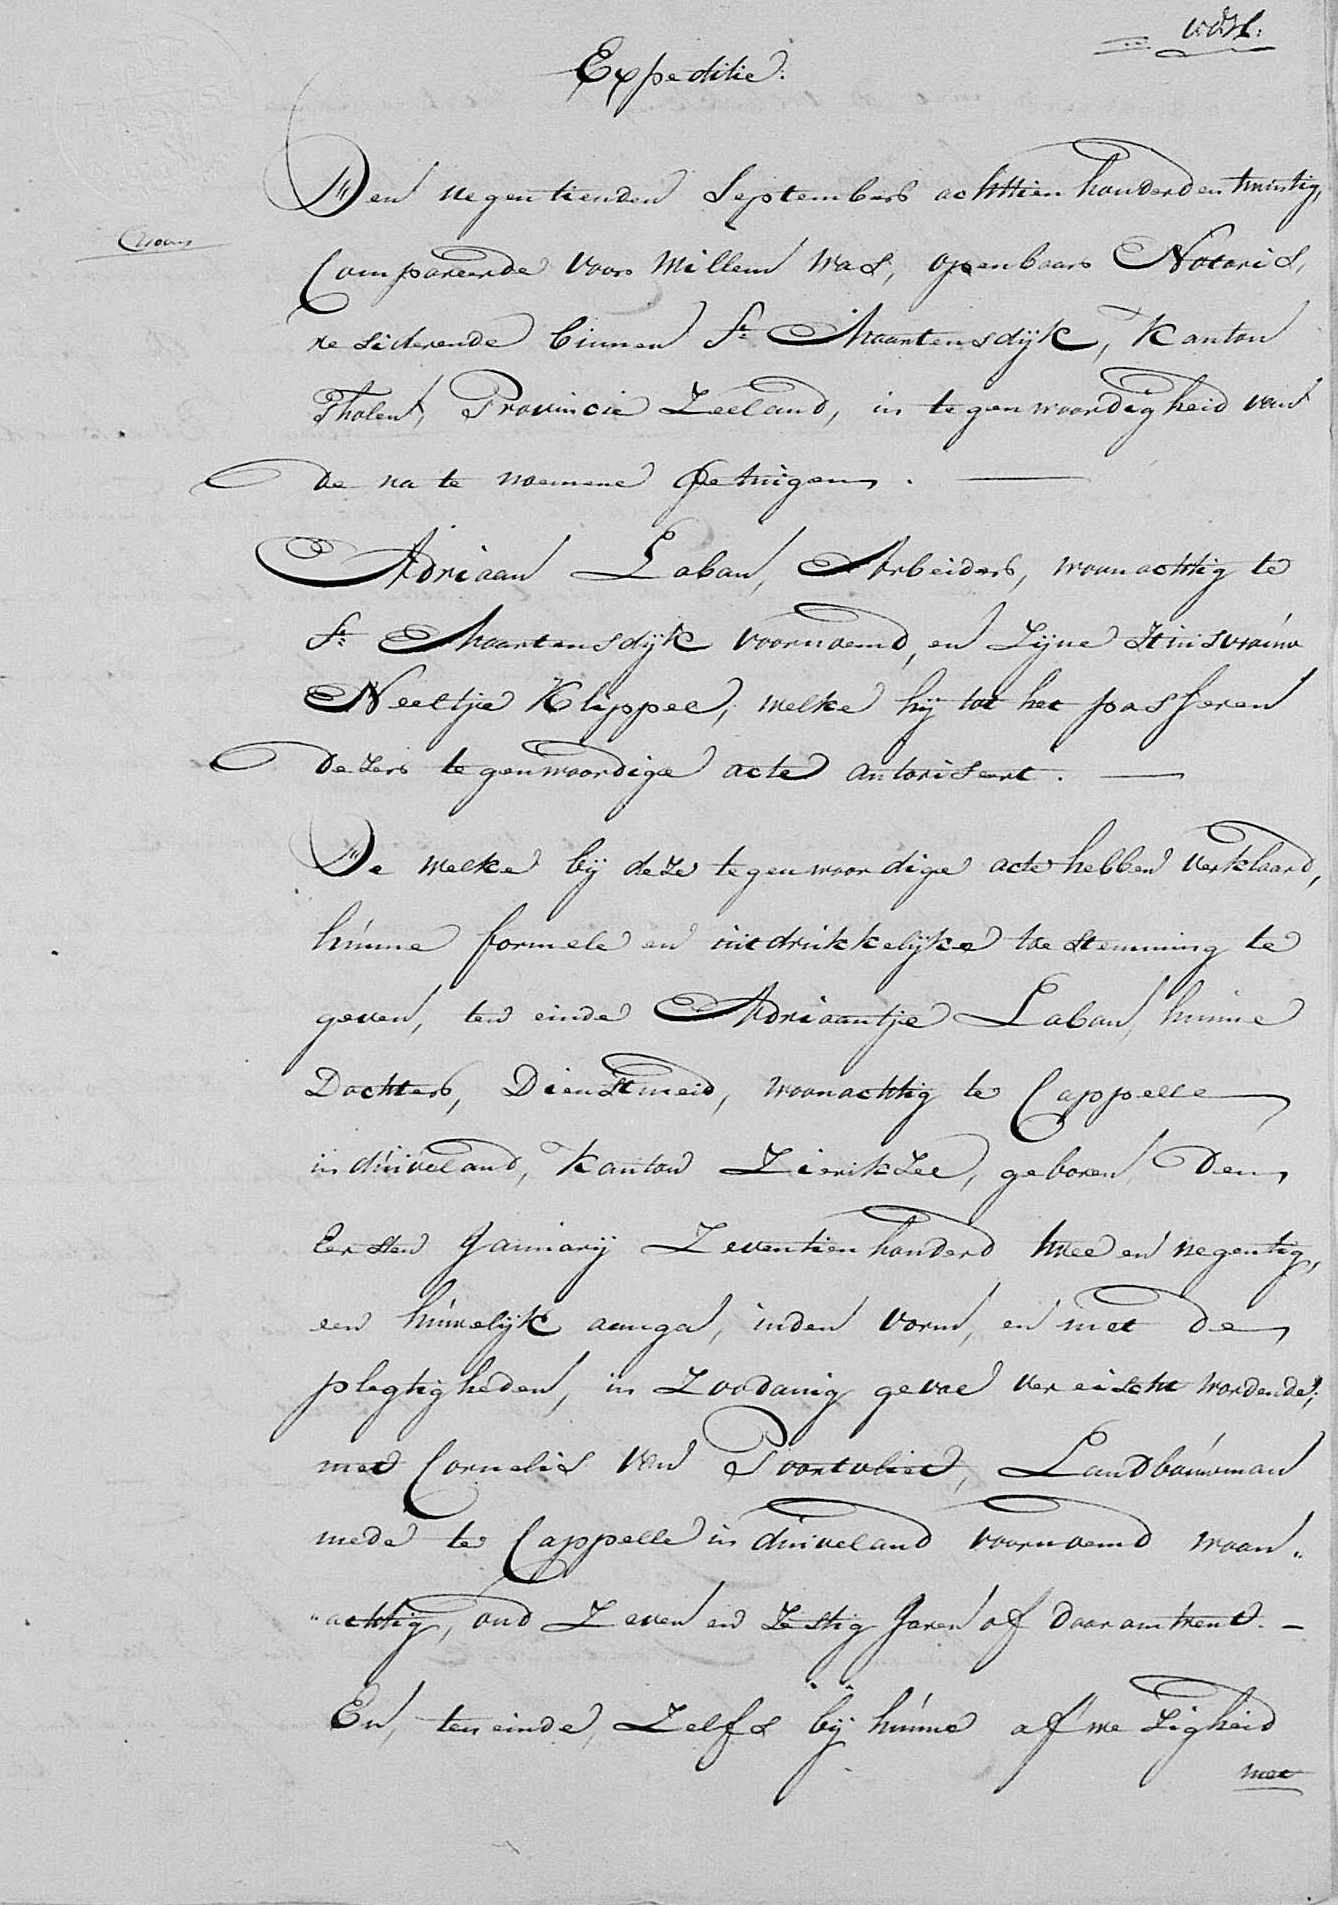 Expeditie.
Den negentienden September achttien honderd en twintig,
Compareerde voor Willem Was, openbaar Notaris,
resideerende binnen St. Maartensdijk, Kanton
Tholen, Provincie Zeeland, in tegenwoordigheid van
de na te noemene getuigen.
Adriaan Laban, Arbeider, woonachtig te
St. Maartensdijk voornoemd, en Zijne Huisvrouw
Neeltje Klippel, welke hij tot het passeren
dezer tegenwoordige acte autoriseert.
De welke bij deze tegenwoordige acte hebben verklaard,
hunne formele en uitdrukkelijke toestemming te
geven, ten einde Adriaantje Laban, hunne
Dochter, Dienstmeid, woonachtig te Cappelle
in duiveland, Kanton Zierikzee, geboren den
Eersten January Zeventienhonderd twee en negentig,
een huwelijk aanga, in den vorm, en met de
plegtigheden, in Zoodanig geval vereischt wordende;
met Cornelis van Poortvliet, Landbouwman
mede te Cappelle in duiveland voornoemd woon„
„achtig, oud Zeven en Zestig Jaren of daaromtrent.
En, ten einde, Zelfs bij hunne afwezigheid
met